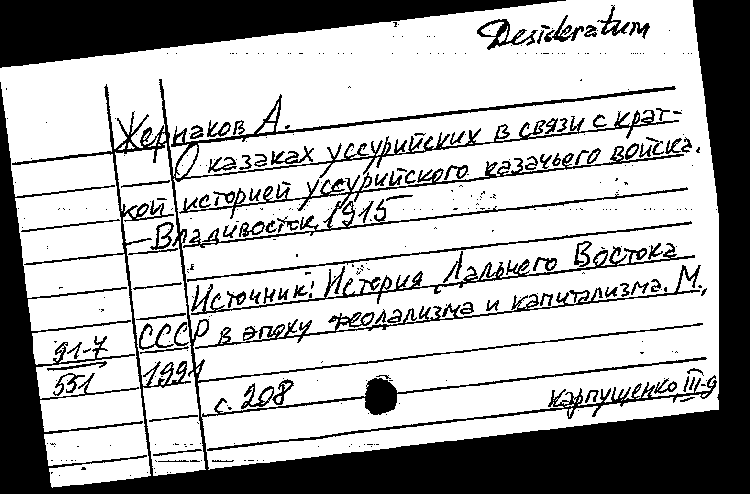 Desideratum
Жернаков, А.
О казаках уссурийских в связи с крат-
кой историей уссурийского казачьего войска.
– Владивосток, 1915
Источник: История Дальнего Востока
СССР в эпоху феодализма и капитализма. М.,
1991
с. 208
91-7
531
Карпущенко, III-9